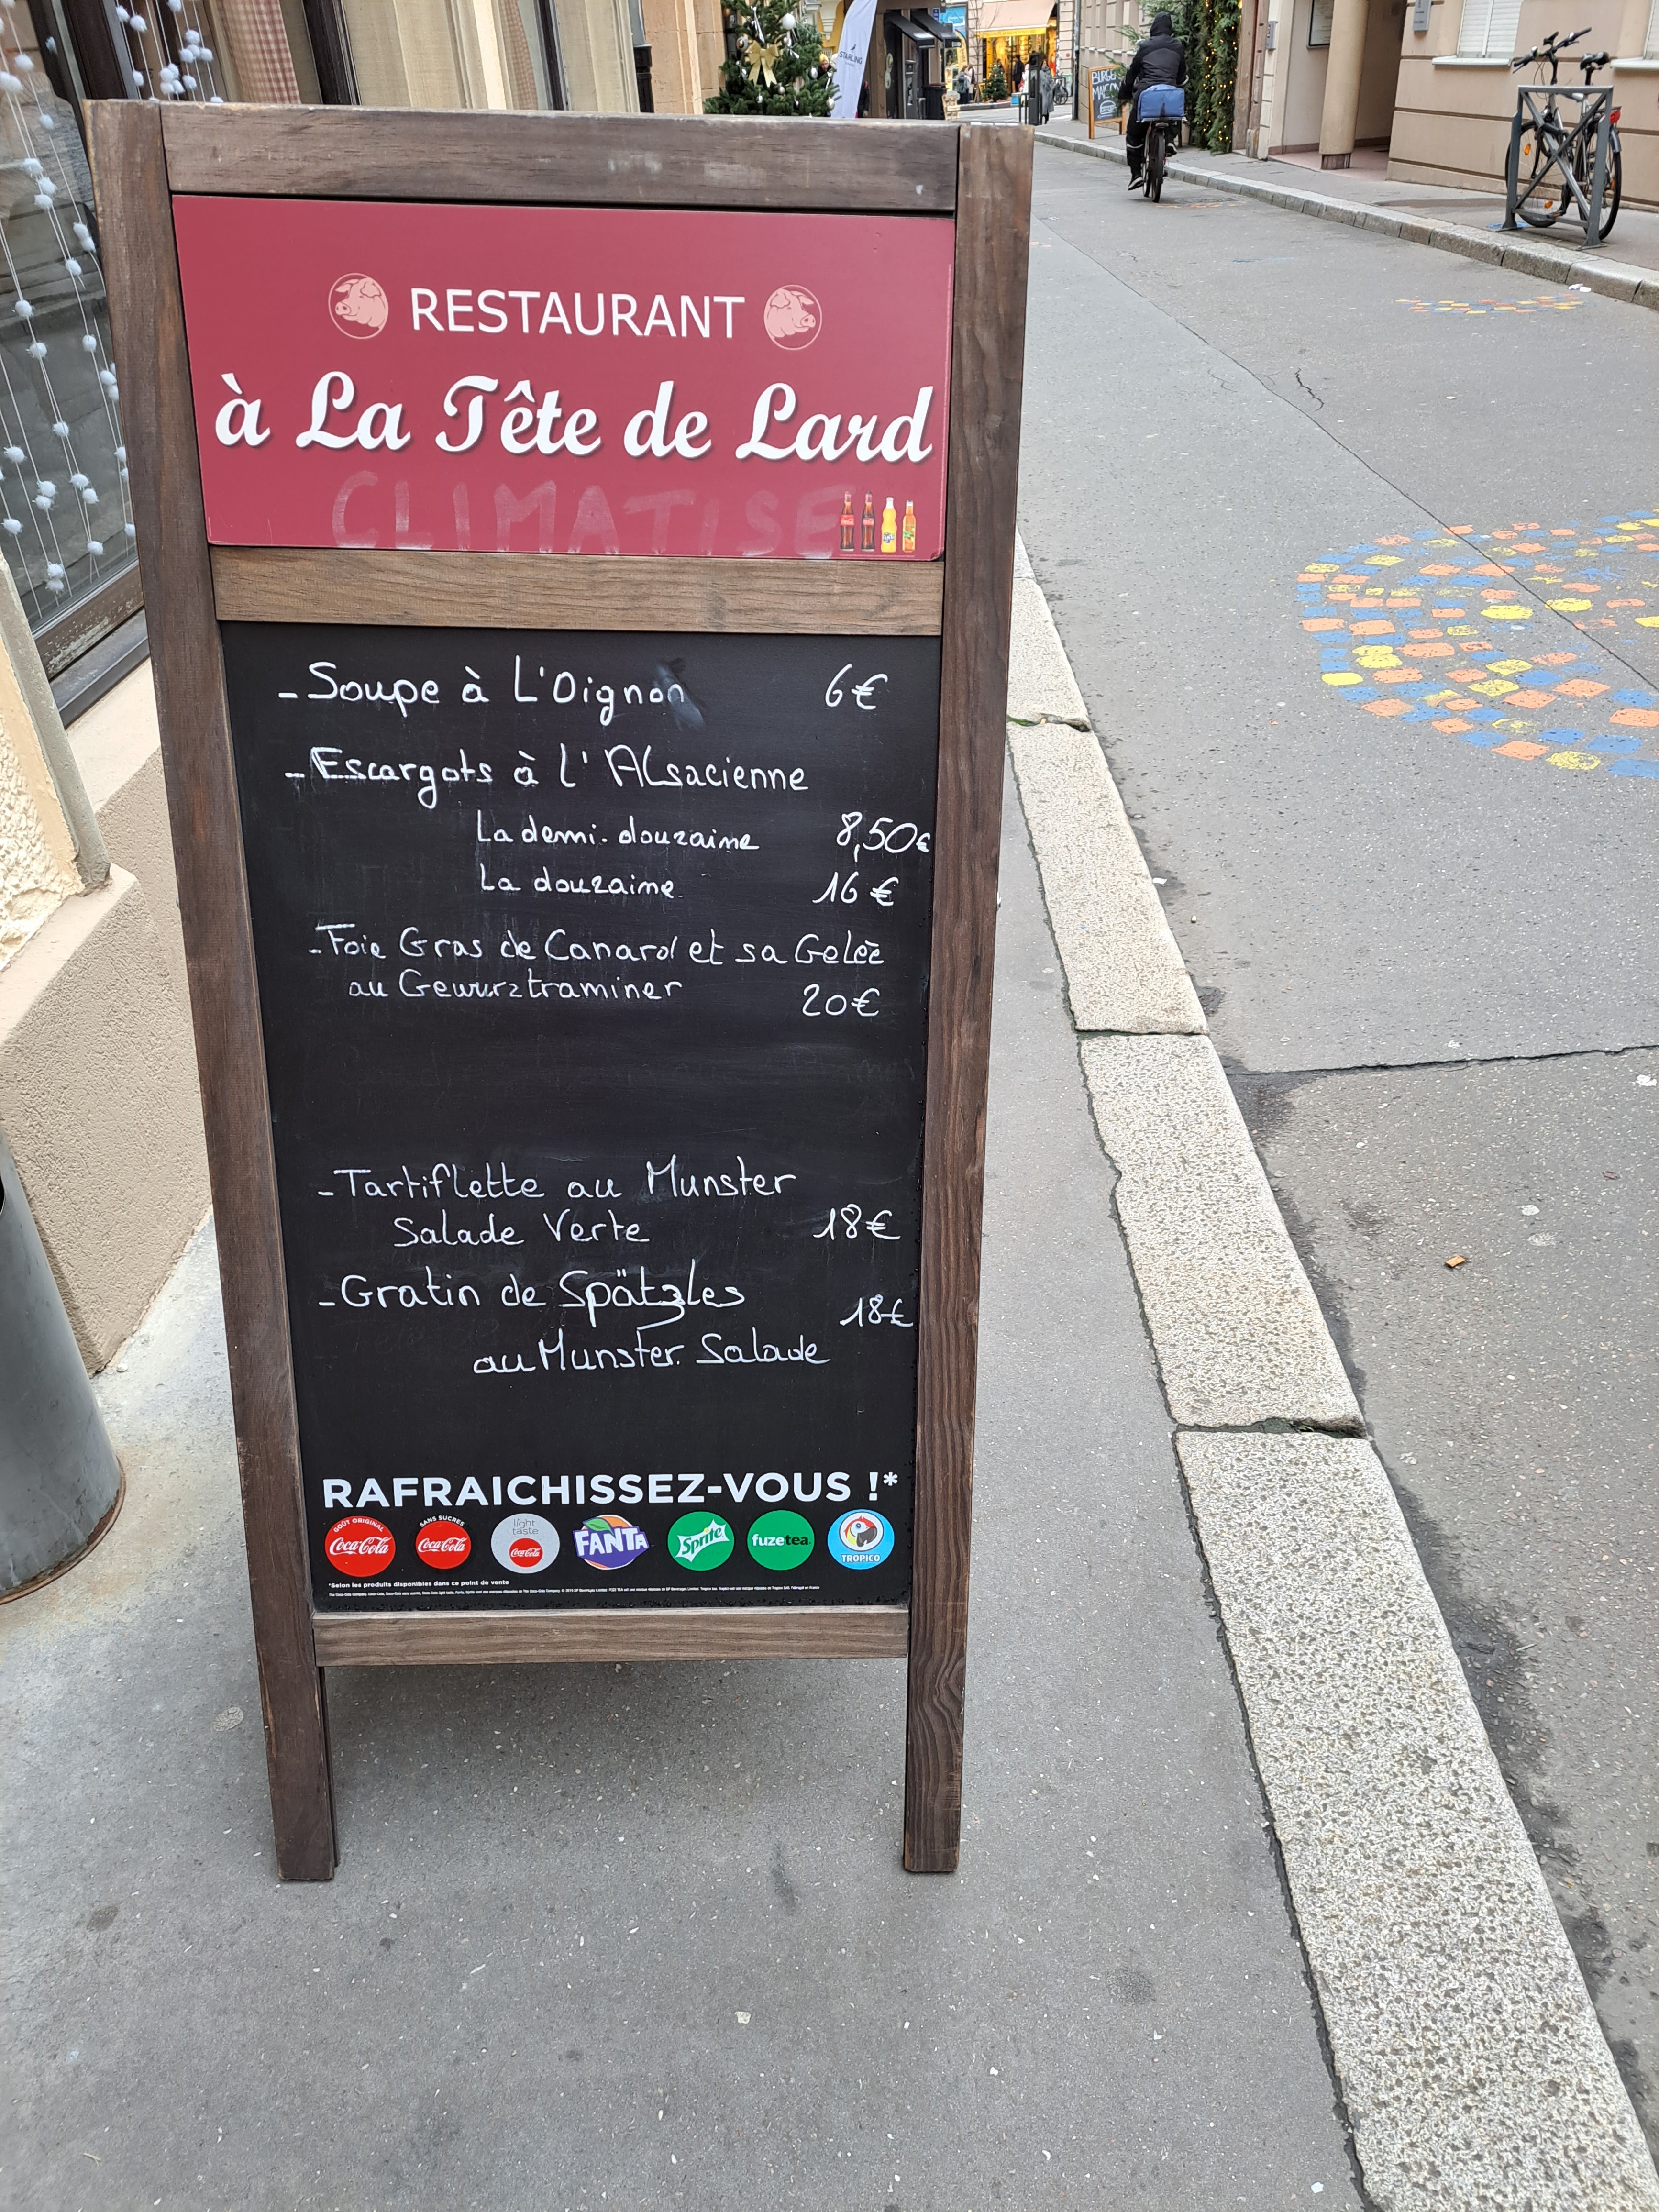 RESTAURANT
à La Tête de Lard
CLIMATISE
- Soupe à L'Oignon 6€
- Escargots à l'Alsacienne
La demi-douzaine 8,50€
La douzaine 16€
- Foie Gras de Canard et sa Gelée
au Gewurztraminer 20€
- Tartiflette au Munster
Salade Verte 18€
- Gratin de Spätzles 18€
au Munster. Salade
RAFRAICHISSEZ-VOUS !*
GOÛT ORIGINAL
Coca-Cola
SANS SUCRES
Coca-Cola
light taste
Coca-Cola
FANTA
Sprite
fuzetea
TROPICO
*Selon les produits disponibles dans ce point de vente
STARLING
BURGER
MAISON